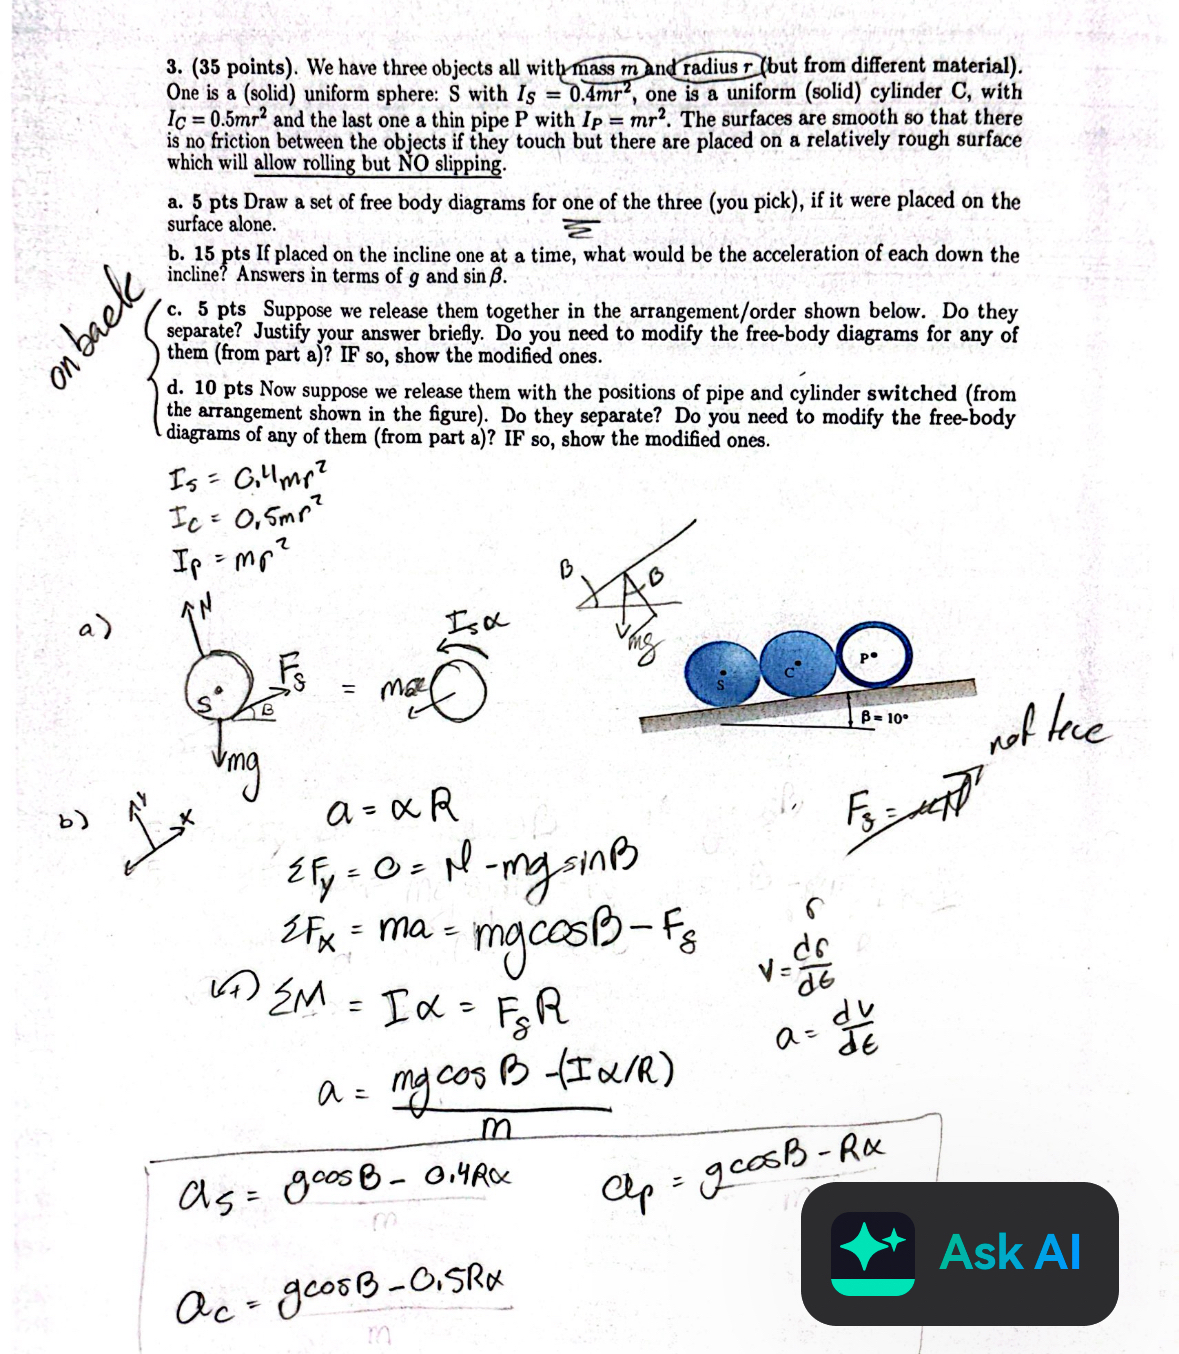 3. (35 points). We have three objects all with mass m and radius r (but from different material).
One is a (solid) uniform sphere: S with I_S = 0.4mr², one is a uniform (solid) cylinder C, with
I_C = 0.5mr² and the last one a thin pipe P with I_P = mr². The surfaces are smooth so that there
is no friction between the objects if they touch but there are placed on a relatively rough surface
which will allow rolling but NO slipping.
a. 5 pts Draw a set of free body diagrams for one of the three (you pick), if it were placed on the
surface alone.
b. 15 pts If placed on the incline one at a time, what would be the acceleration of each down the
incline? Answers in terms of g and sin β.
on back
c. 5 pts Suppose we release them together in the arrangement/order shown below. Do they
separate? Justify your answer briefly. Do you need to modify the free-body diagrams for any of
them (from part a)? IF so, show the modified ones.
d. 10 pts Now suppose we release them with the positions of pipe and cylinder switched (from
the arrangement shown in the figure). Do they separate? Do you need to modify the free-body
diagrams of any of them (from part a)? IF so, show the modified ones.
I_S = 0,4mr²
I_C = 0,5mr²
I_P = mr²
a)
N
S
F_s
B
mg
=
ma
I_sα
B
B
mg
S
C
P
β = 10°
b)
Y
X
a = αR
ΣF_y = 0 = N - mg sinB
ΣF_x = ma = mg cosB - F_s
+) ΣM = Iα = F_s R
a = mg cos B - (Iα/R)
m
F_s = μN
r
v = dr/dt
a = dv/dt
a_s = gcosB - 0.4Rα
m
a_p = gcosB - Rα
a_c = gcosB - 0.5Rα
m
Ask AI